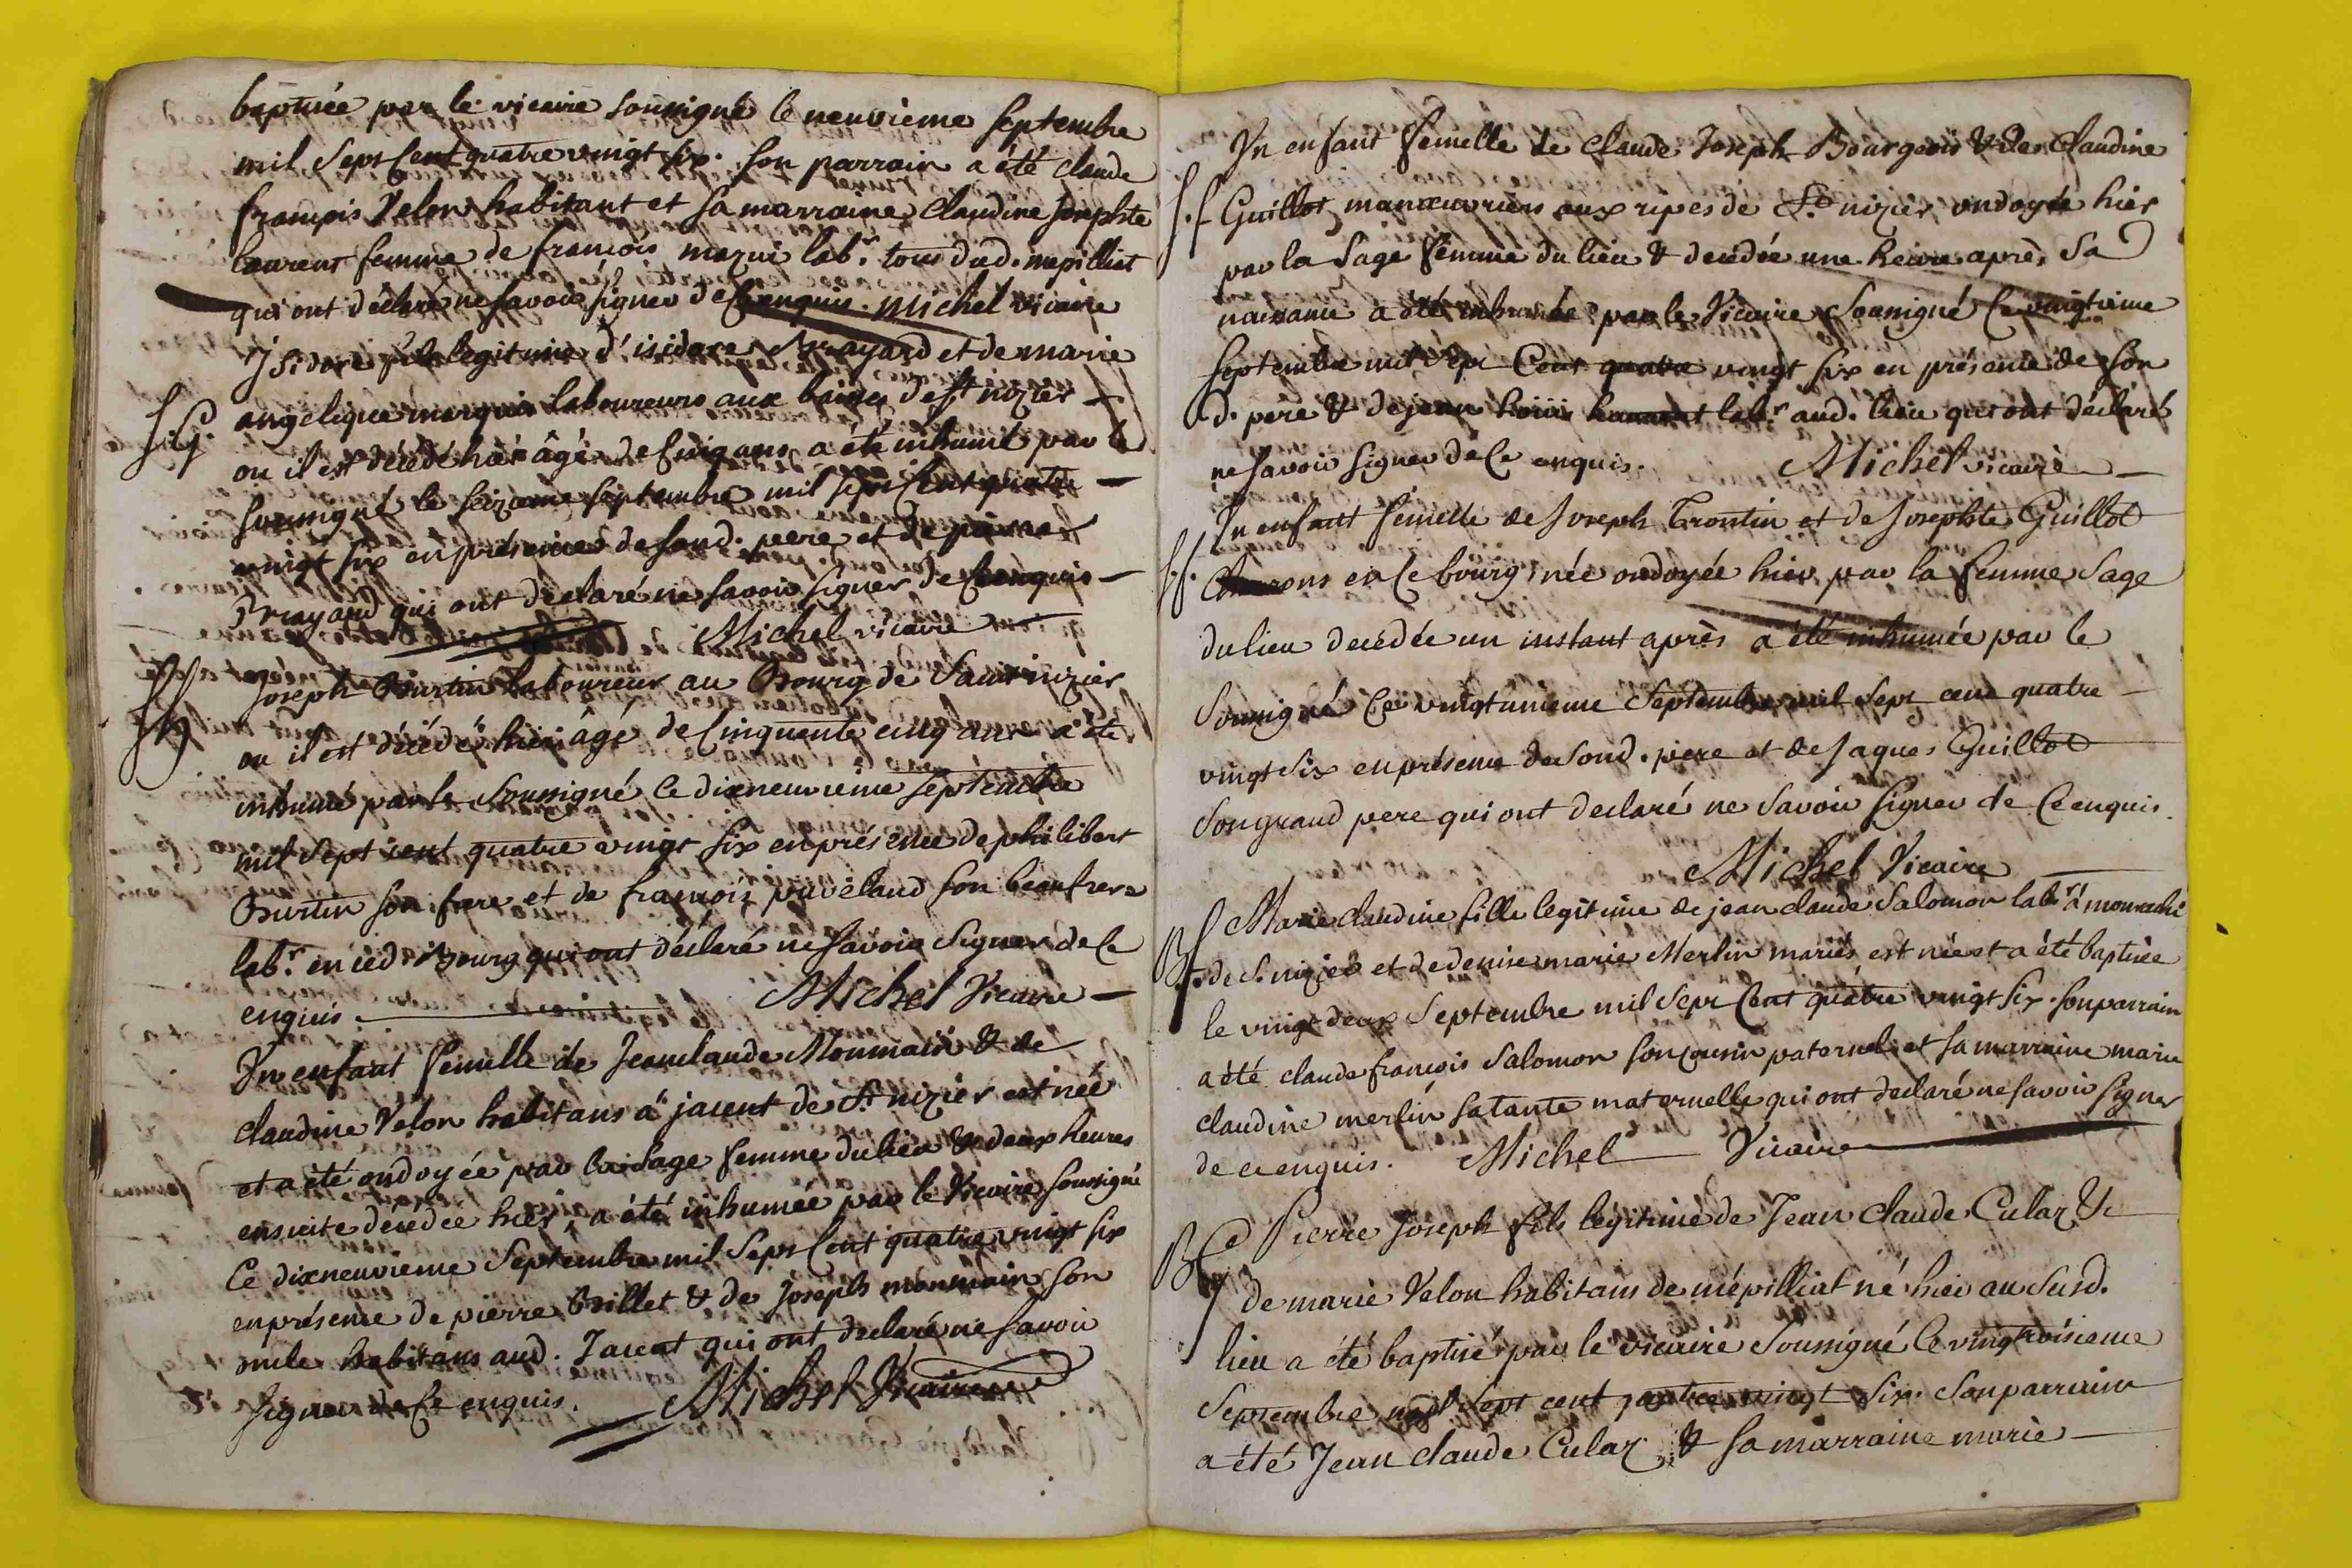 baptisée par le vicaire soussigné le neuvieme septembre
mil sept cent quatre vingt six. son parrain a été claude
françois Velon habitant et sa marraine claudine josephte
laurent femme de françois mazui labr. tous dud. mepilliat
qui ont déclaré ne savoir signer de ce enquis. Michel vicaire
Isidore fils legitime d'isidore Brayard et de marie
S. G. angelique marguin laboureurs aux baises de St nizier
ou il est décédé hier âgé de cinq ans a été inhumé par le
soussigné le seizieme septembre mil sept cent quatre
vingt six en présence de sond. pere et de pierre
Brayard qui ont declaré ne savoir signer de ce enquis
Michel vicaire
Joseph Burtin Laboureur au Bourg de Saint nizier
Sh ou il est décédé hier âgé de cinquente cinq ans a été
inhumé par le soussigné ce dixneuvieme septembre
mil sept cent quatre vingt six en présence de philibert
Burtin son frere et de françois paveland son beaufrere
labr. en ced. Bourg qui ont déclaré ne savoir signer de ce
enquis. Michel Vicaire
Un enfant femelle de Jeanclaude Monmain & de
claudine Velon habitans à jaient de St nizier est née
et a été ondoyée par la sage femme du lieu & deux heures
ensuite decédée hier, a été inhumée par le Vicaire soussigné
Ce dixneuvieme Septembre mil sept cent quatre vingt six
en présence de pierre Billet & de joseph monmain son
oncle habitans aud. Jaient qui ont declaré ne savoir
signer de ce enquis. Michel Vicaire
Un enfant femelle de Claude Joseph Bourgeois & de Claudine
S. f Guillot manœuvriers aux ripes de St nizier ondoyée hier
par la Sage femme du lieu & decédée une heure après sa
naissance a été inhumée par le Vicaire Soussigné Ce vingtieme
septembre mil sept Cent quatre vingt six en présence de son
d. pere & de jean labr. aud. lieu qui ont déclaré
ne savoir signer de ce enquis. Michel vicaire
Un enfant femelle de Joseph Trontin et de Josephte Guillot
Sf. Charons en ce bourg, née ondoyée hier par la femme sage
du lieu decédée un instant après a été inhumée par le
Soussigné Ce vingtunieme Septembre mil sept cent quatre
vingt six en présence de sond. pere et de Jaques Guillot
son grand pere qui ont declaré ne savoir signer de ce enquis.
Michel Vicaire
Marie claudine fille legitime de jean claude Salomon labr. à
Bf. de St nizier et de denise marie Merlin mariés est née et a été baptisée
le vingt deux Septembre mil sept cent quatre vingt six. son parrain
a été claude françois Salomon son cousin paternel et sa marraine marie
claudine merlin sa tante maternelle qui ont declaré ne savoir signer
de ce enquis. Michel Vicaire
Pierre Joseph fils legitime de Jean claude Culaz &
BG de marie Velon habitans de mépilliat né hier au susd.
lieu a été baptisé par le vicaire Soussigné Ce vingtroisieme
Septembre mil sept cent quatre vingt six. Son parrain
a été Jean claude Culaz & sa marraine marie